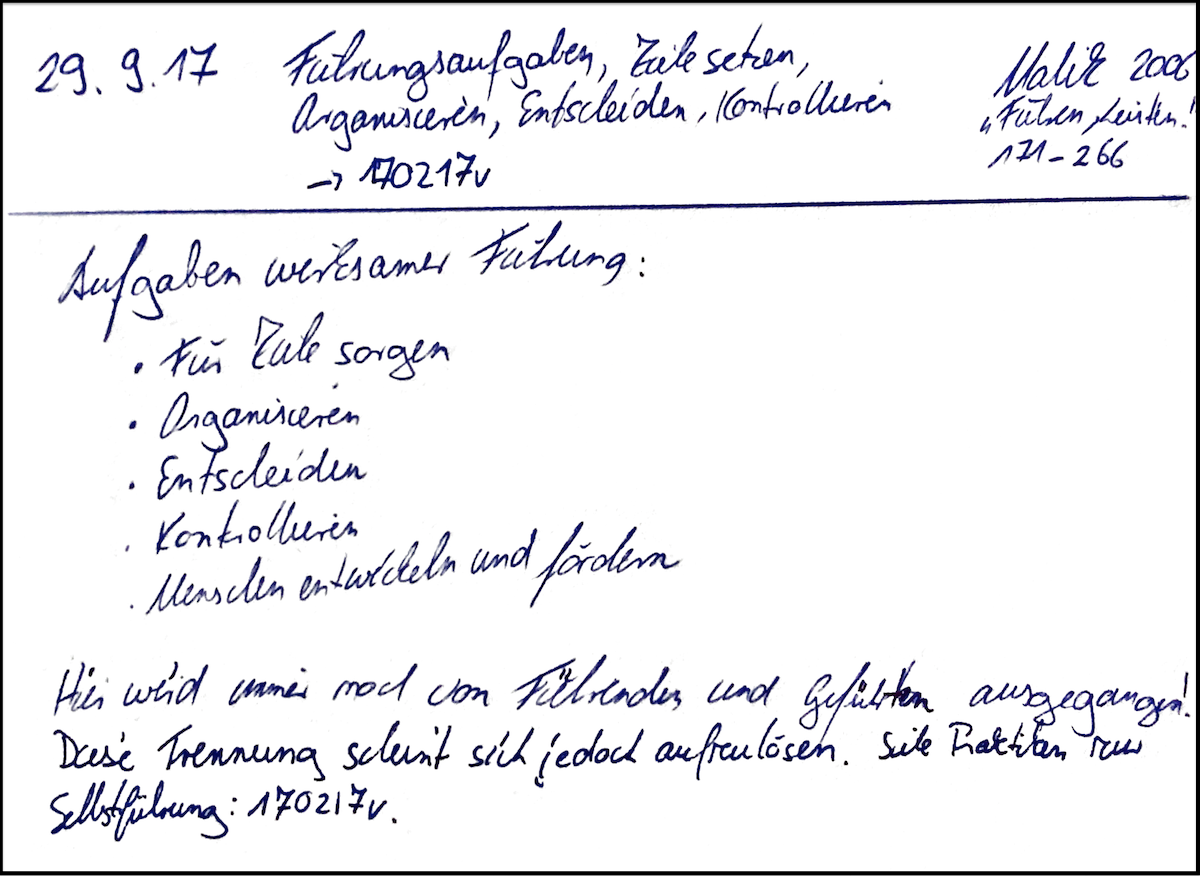 29.9.17 Führungsaufgaben, Ziele setzen, Malik 2006
Organisieren, Entscheiden, Kontrollieren "Führen, Leisten!"
→ 170217v 171-266
Aufgaben wirksamer Führung:
• Für Ziele sorgen
• Organisieren
• Entscheiden
• Kontrollieren
• Menschen entwickeln und fördern
Hier wird immer noch von Führenden und Geführten ausgegangen!
Diese Trennung scheint sich jedoch aufzulösen. Siehe Praktiken zur
Selbstführung: 170217v.